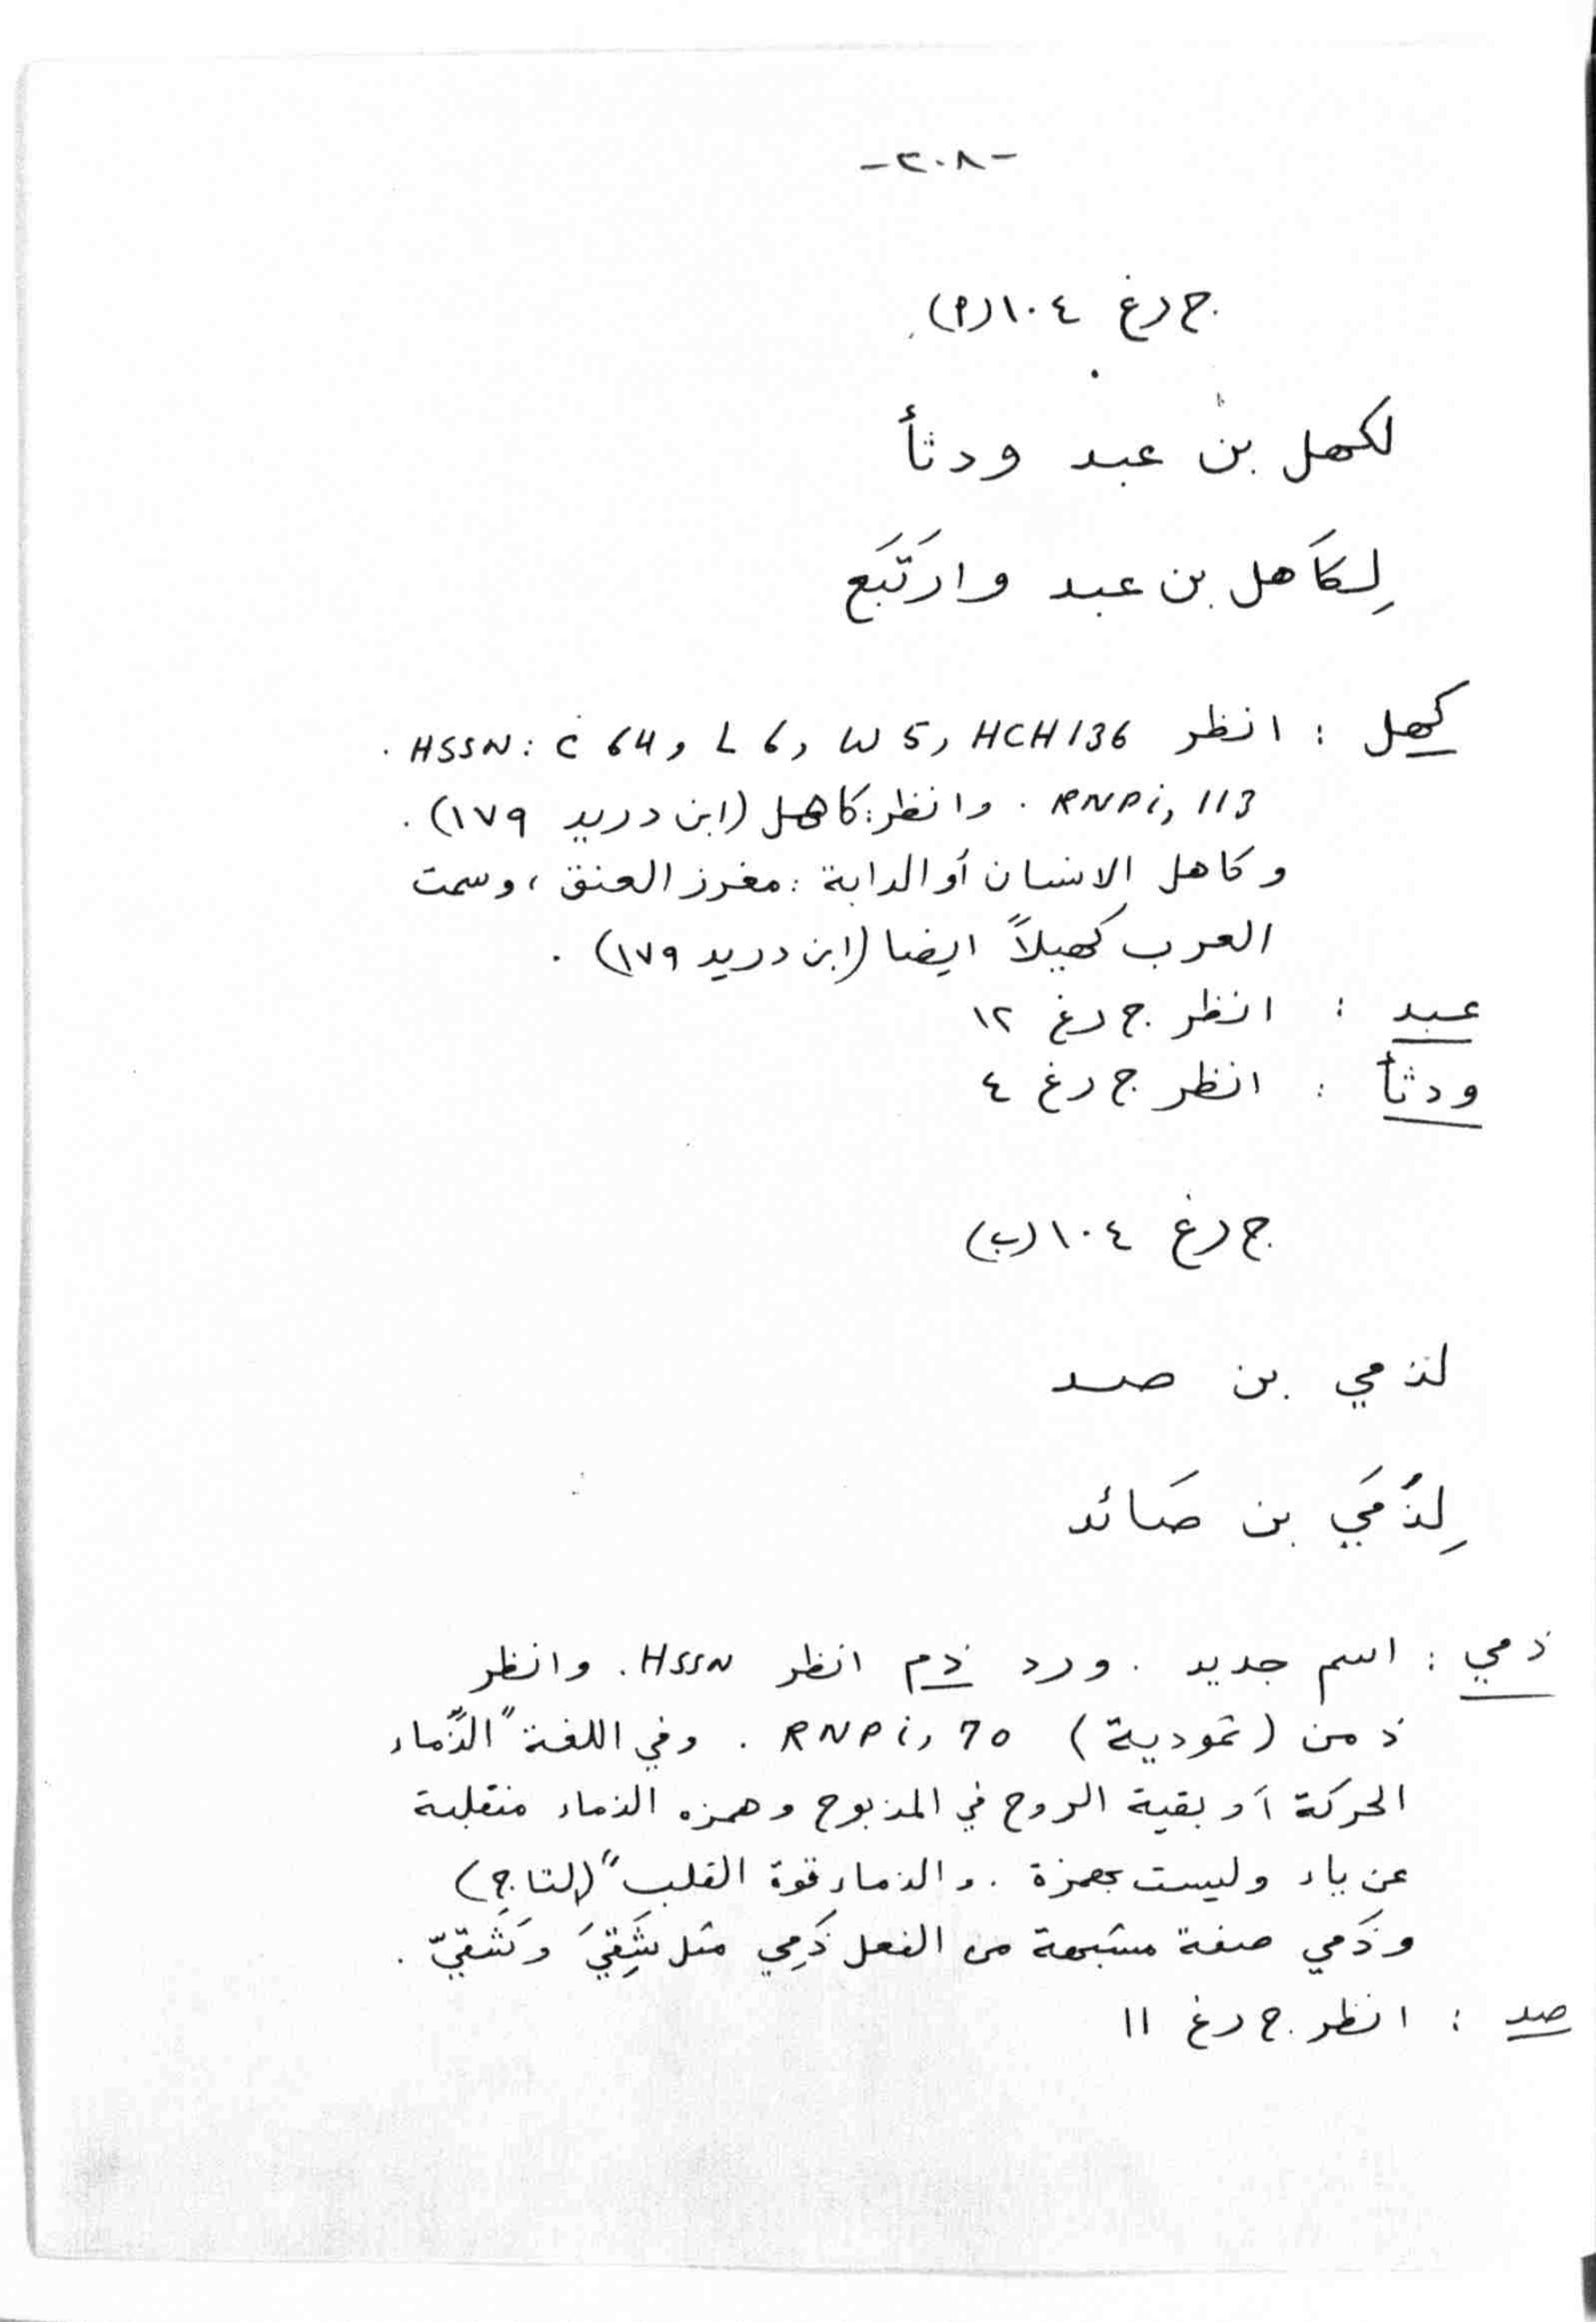 -٢٠٨-
ج رغ ١٠٤(أ)
لكهل بن عبد ودثأ
لِكَاهل بن عبد وارَتَّبَع
كهل : انظر HSSN: C 64, L 6, W 5, HCH 136 .
RNP i, 113 . وانظر: كاهل (ابن دريد ١٧٩) .
وكاهل الانسان أو الدابة : مغرز العنق ، وسمت
العرب كهيلاً ايضا (ابن دريد ١٧٩) .
عبد : انظر ج رغ ١٢
ودثأ : انظر ج رغ ٤
ج رغ ١٠٤(ب)
لذمي بن صد
لِذُمَي بن صَائد
ذمي : اسم جديد . ورد ذم انظر HSSN . وانظر
ذ من (ثمودية) RNP i, 70 . وفي اللغة "الذَّماء
الحركة أو بقية الروح في المذبوح وهمزه الذماء منقلبة
عن ياء وليست بهمزة . والذماء قوة القلب" (التاج)
وذَمي صفة مشبهة من الفعل ذَمِي مثل شَقِيَ وشَقيّ .
صد : انظر ج رغ ١١